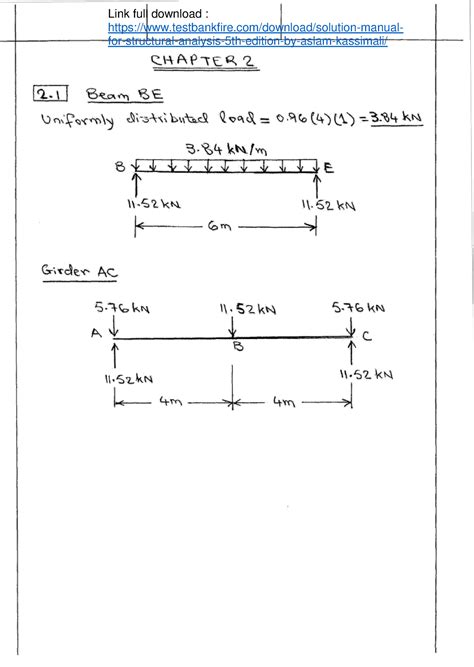 Link full download :
https://www.testbankfire.com/download/solution-manual-
for-structural-analysis-5th-edition-by-aslam-kassimali/
CHAPTER 2
2.1 Beam BE
Uniformly distributed load = 0.96(4)(1) = 3.84 kN
3.84 kN/m
B E
11.52 kN 11.52 kN
6m
Girder AC
5.76 kN 11.52 kN 5.76 kN
A C
B
11.52 kN 11.52 kN
4m 4m